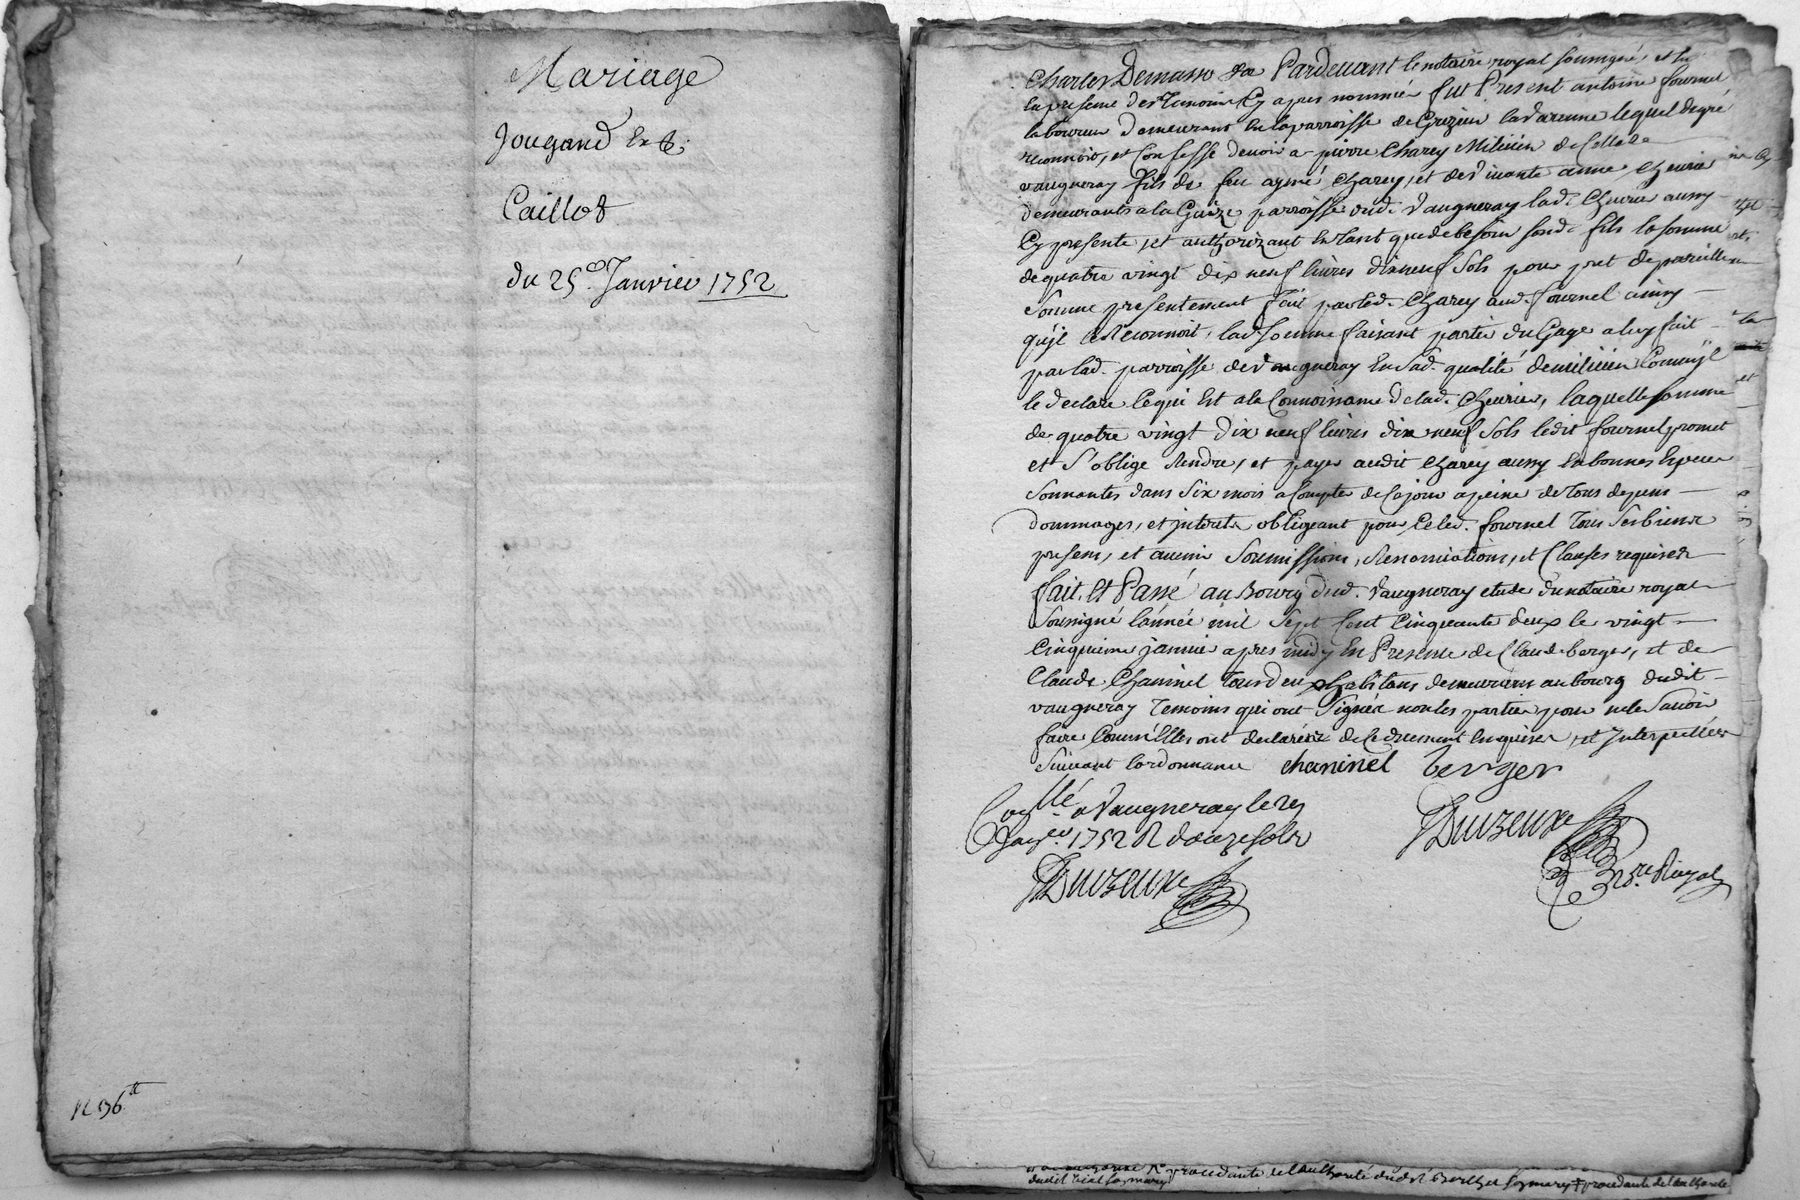 Mariage
Jougand Et
Caillot
du 25e. Janvier 1752
R 36tt
Pardevant le notaire royal soussigné, et en
la presence des Temoins Cy apres nommés fut Present antoine fournel
laboureur demeurant En la parroisse de Grezieu la varenne lequel de gré
reconnoit, et Confesse devoir a pierre Charey Milicien de Celle de
vaugneray fils de feu aymé Charey, et de vivante anne Chevrier
demeurants a la parroisse dud. Vaugneray lad. Chevrier aussy
Cy presente, et authorizant En tant que de besoin sond. fils la somme
de quatre vingt dix neuf livres dix neuf sols pour pret de pareille
Somme presentement fait par led. Charey aud. fournel ainsy
qu'jl le Reconnoit, lad. somme faisant partie du Gage a luy fait
par lad. parroisse de Vaugneray En sad. qualité de milicien Comm'jl
le declare Ce qui Est a la Connoissance de lad. Chevrier, laquelle somme
de quatre vingt dix neuf livres dix neuf sols ledit fournel promet
et s'oblige Rendre, et payer audit Charey aussy En bonnes Especes
Sonnantes dans Six mois a Compter de Ce jour a peine de tous depens
dommages, et jnterets obligeant pour Ce led. fournel tous ses biens
presens, et avenir Soumissions, Renonciations, et Clauses requises
fait, Et Passé au Bourg dud. Vaugneray etude du notaire royal
Soussigné l'année mil Sept Cent Cinquante deux le vingt
Cinquieme janvier apres midy En Presence de Claude berger, et de
Claude Chaninel tous deux habitans demeurans au bourg dudit
vaugneray Temoins qui ont Signés non les parties pour ne le Savoir
faire Comm'Elles ont declaré de Ce dûement Enquises, et Interpellées
Suivant l'ordonnance chaninel berger
Conllé a Vaugneray le
Janv. 1752 R douze sols
Duvzeuxe
Duvzeuxe
Nre. Royal